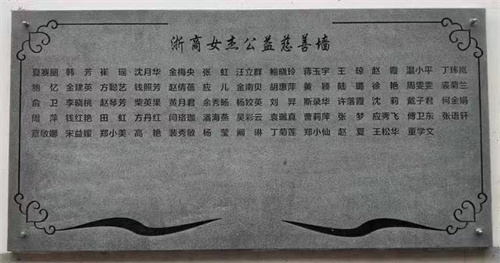 浙商女杰公益慈善墙
夏赛丽 韩芳 崔瑶 沈月华 金梅央 张虹 汪立群 鲍晓玲 蒋玉宇 王琼 赵霞 温小平 丁玮岚
施忆 金建英 方聪艺 钱照芳 赵倩蓓 应儿 金南贝 胡惠萍 黄颖 陆璐 徐艳 周雯雯 裘菊兰
俞卫 李晓桃 赵琴芳 柴英里 黄月君 余秀杨 杨姣英 刘羿 斯录华 许落霞 沈莉 戴子君 何金娟
周萍 钱红艳 田虹 方丹红 闫珞珈 潘海燕 吴彩云 袁珮真 曹莉萍 张梦 应秀飞 傅卫东 张语轩
蔡敏娜 宋益嫒 郑小美 高艳 裴秀敏 杨莹 阚琳 丁菊莲 郑小仙 赵夏 王松华 董学文